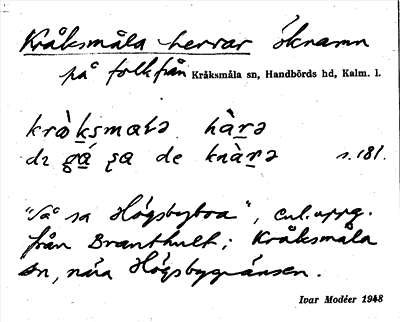 Kråksmåla herrar öknamn
på folk från Kråksmåla sn, Handbörds hd, Kalm. l.
hὰrə
de s. 181.
"Så sa Högsbyboa", enl. uppg.
från Branthult; Kråksmåla
sn, nära Högsbygränsen.
Ivar Modéer 1948